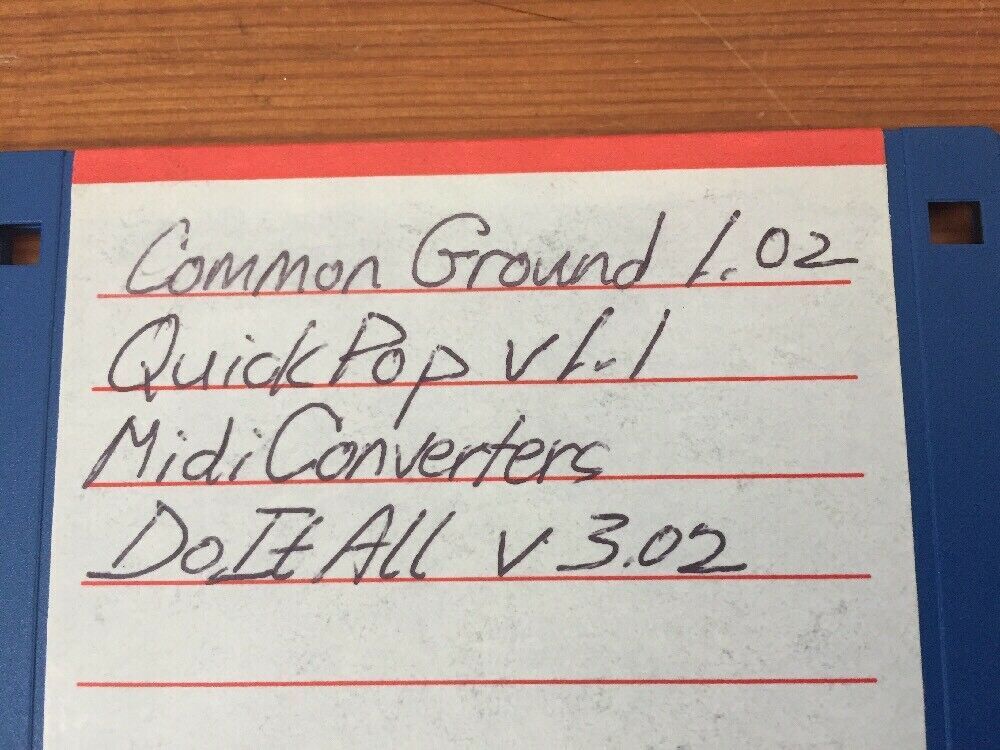 Common Ground 1.02
QuickPop v1.1
MidiConverters
DoItAll v 3.02